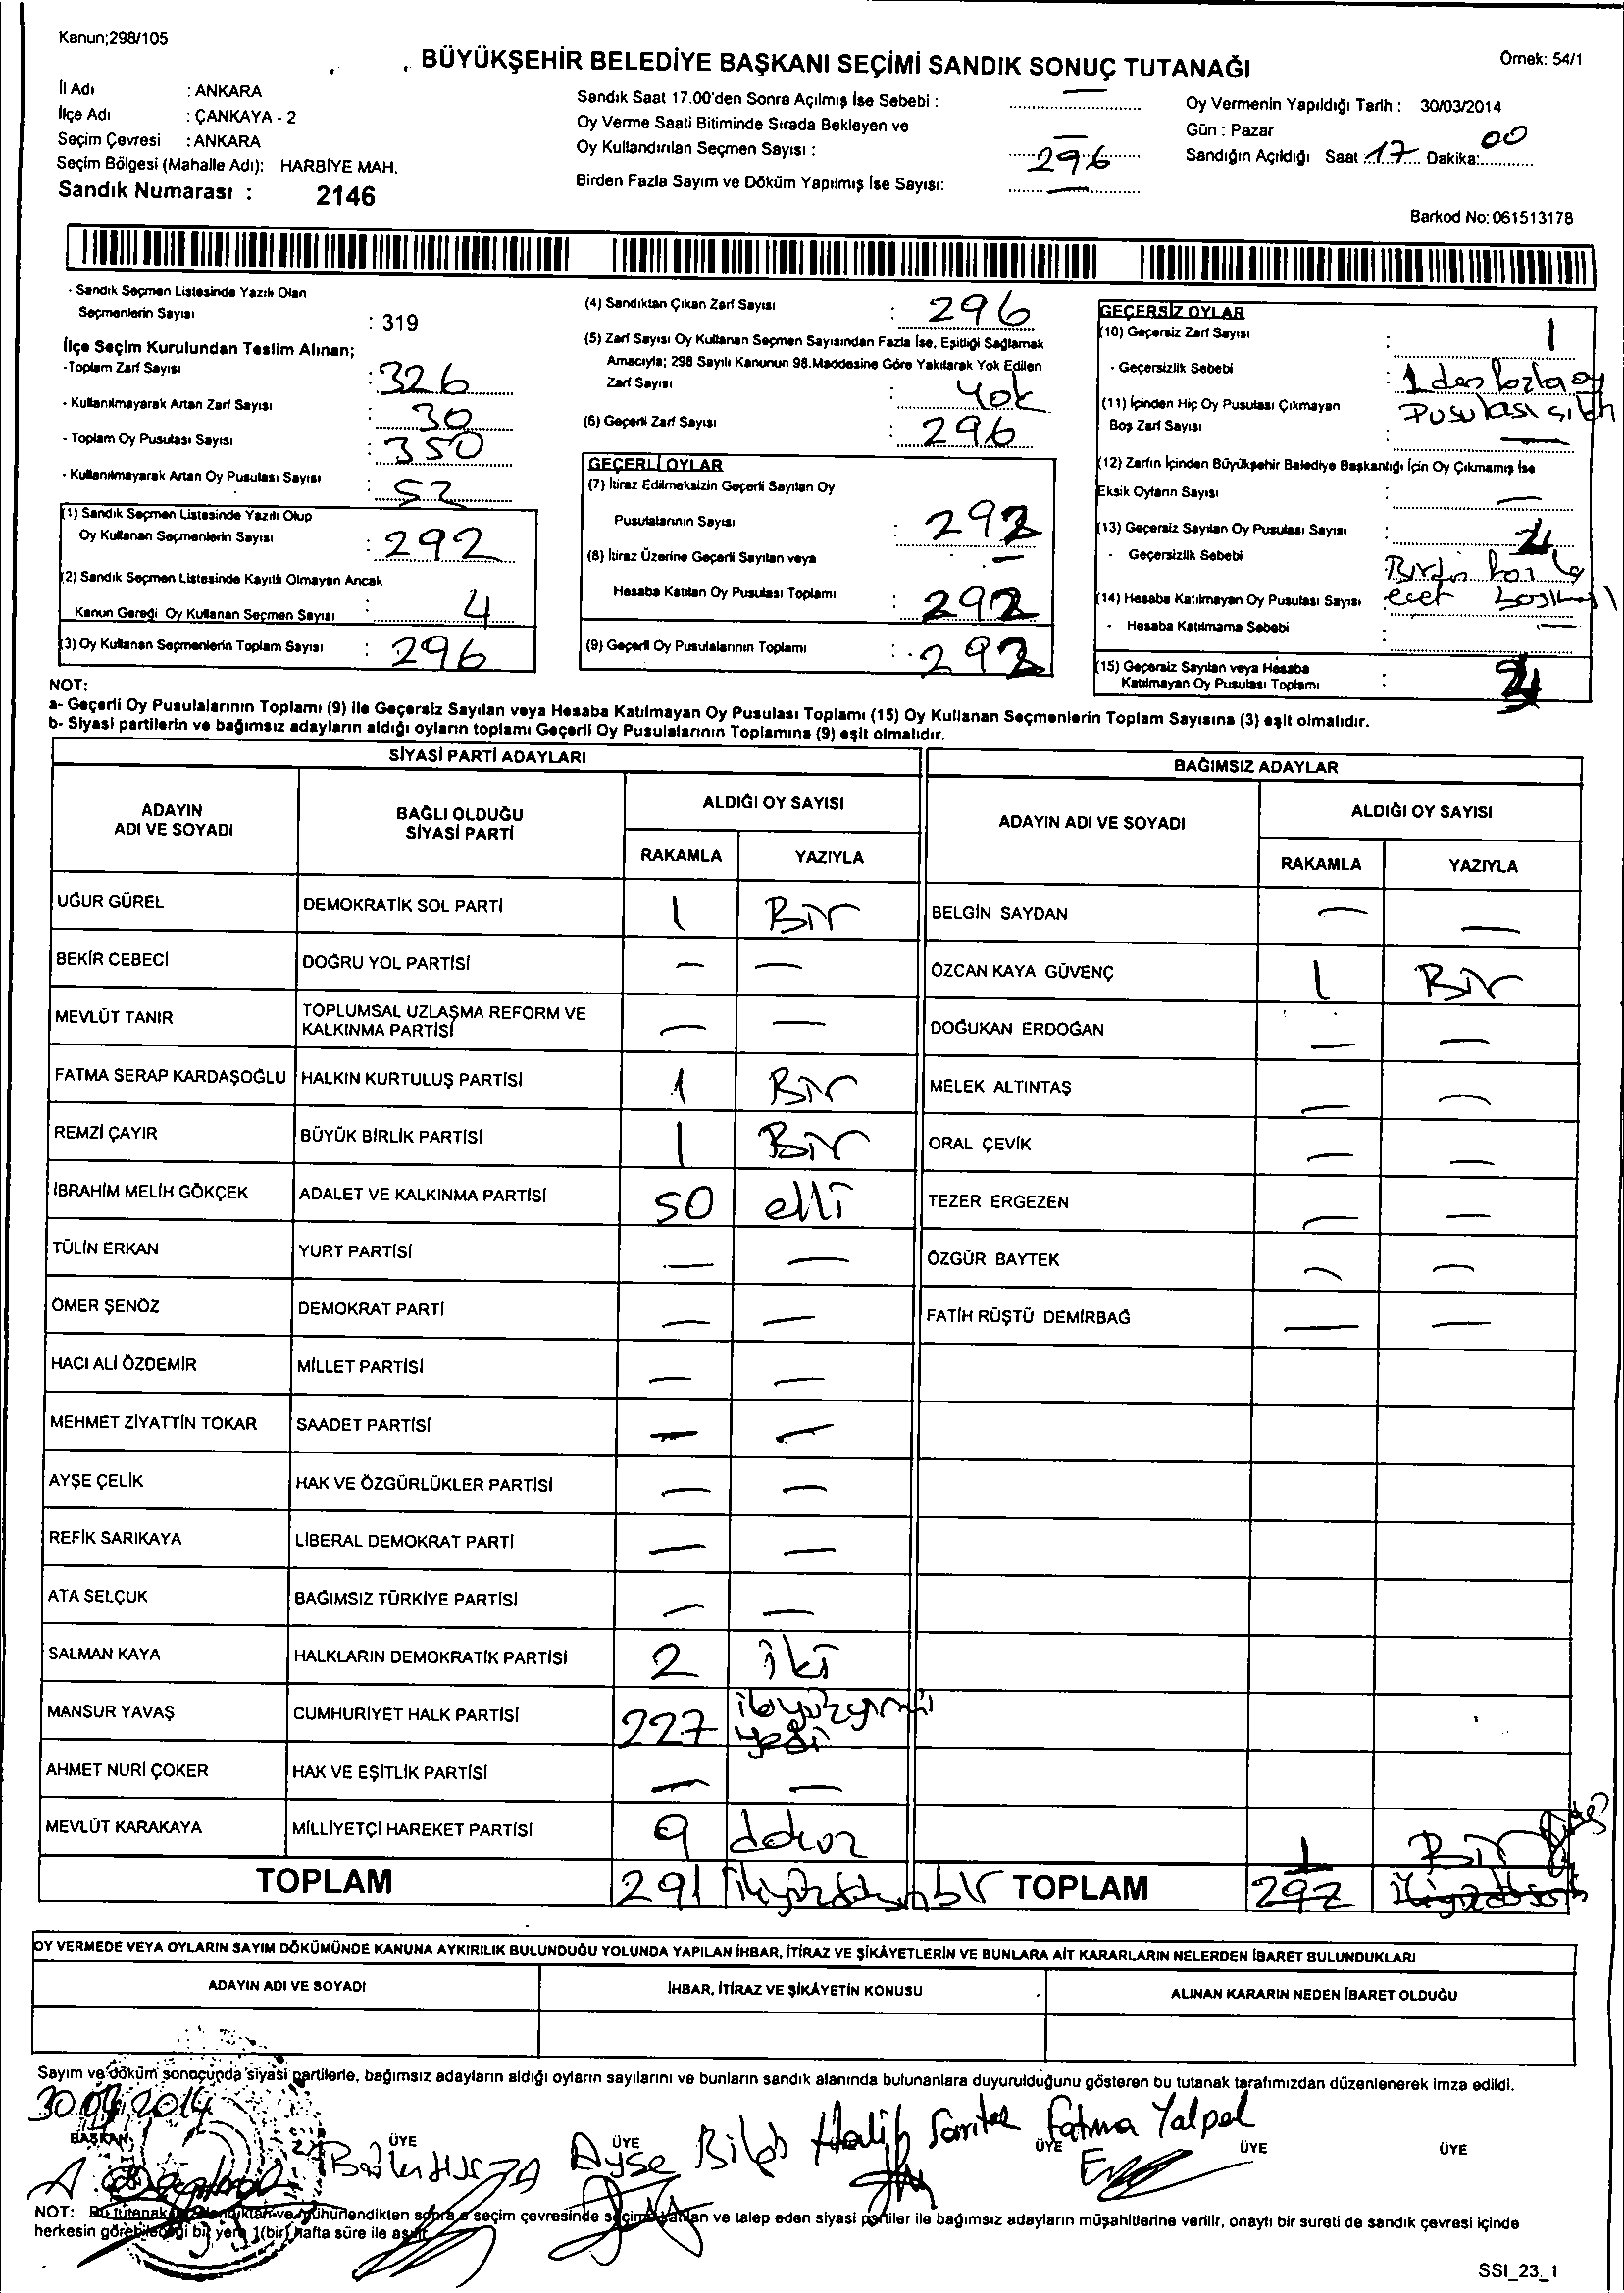 Kanun;298/105
BÜYÜKŞEHİR BELEDİYE BAŞKANI SEÇİMİ SANDIK SONUÇ TUTANAĞI
Örnek: 54/1
İl Adı : ANKARA
İlçe Adı : ÇANKAYA - 2
Seçim Çevresi : ANKARA
Seçim Bölgesi (Mahalle Adı): HARBİYE MAH.
Sandık Numarası : 2146
Sandık Saat 17.00'den Sonra Açılmış İse Sebebi : —
Oy Verme Saati Bitiminde Sırada Bekleyen ve
Oy Kullandırılan Seçmen Sayısı : — 296
Birden Fazla Sayım ve Döküm Yapılmış İse Sayısı: —
Oy Vermenin Yapıldığı Tarih : 30/03/2014
Gün : Pazar
Sandığın Açıldığı Saat 17 Dakika: 00
Barkod No: 061513178
- Sandık Seçmen Listesinde Yazılı Olan
Seçmenlerin Sayısı : 319
İlçe Seçim Kurulundan Teslim Alınan;
-Toplam Zarf Sayısı : 326
- Kullanılmayarak Artan Zarf Sayısı : 30
- Toplam Oy Pusulası Sayısı : 350
- Kullanılmayarak Artan Oy Pusulası Sayısı : 52
(1) Sandık Seçmen Listesinde Yazılı Olup
Oy Kullanan Seçmenlerin Sayısı : 292
(2) Sandık Seçmen Listesinde Kayıtlı Olmayan Ancak
Kanun Gereği Oy Kullanan Seçmen Sayısı : 4
(3) Oy Kullanan Seçmenlerin Toplam Sayısı : 296
(4) Sandıktan Çıkan Zarf Sayısı : 296
(5) Zarf Sayısı Oy Kullanan Seçmen Sayısından Fazla İse, Eşitliği Sağlamak
Amacıyla; 298 Sayılı Kanunun 98.Maddesine Göre Yakılarak Yok Edilen
Zarf Sayısı : Yok
(6) Geçerli Zarf Sayısı : 296
GEÇERLİ OYLAR
(7) İtiraz Edilmeksizin Geçerli Sayılan Oy
Pusulalarının Sayısı : 292
(8) İtiraz Üzerine Geçerli Sayılan veya : —
Hesaba Katılan Oy Pusulası Toplamı : 292
(9) Geçerli Oy Pusulalarının Toplamı : 292
GEÇERSİZ OYLAR
(10) Geçersiz Zarf Sayısı : 1
- Geçersizlik Sebebi : 1 den fazla oy
Pusulası çıktı
(11) İçinden Hiç Oy Pusulası Çıkmayan
Boş Zarf Sayısı : —
(12) Zarfın İçinden Büyükşehir Belediye Başkanlığı İçin Oy Çıkmamış İse
Eksik Oyların Sayısı : —
(13) Geçersiz Sayılan Oy Pusulası Sayısı : 4
- Geçersizlik Sebebi : Birden fazla
evet
(14) Hesaba Katılmayan Oy Pusulası Sayısı
- Hesaba Katılmama Sebebi : —
(15) Geçersiz Sayılan veya Hesaba
Katılmayan Oy Pusulası Toplamı : 4
NOT:
a- Geçerli Oy Pusulalarının Toplamı (9) ile Geçersiz Sayılan veya Hesaba Katılmayan Oy Pusulası Toplamı (15) Oy Kullanan Seçmenlerin Toplam Sayısına (3) eşit olmalıdır.
b- Siyasi partilerin ve bağımsız adayların aldığı oyların toplamı Geçerli Oy Pusulalarının Toplamına (9) eşit olmalıdır.
SİYASİ PARTİ ADAYLARI
ADAYIN ADI VE SOYADI
BAĞLI OLDUĞU SİYASİ PARTİ
ALDIĞI OY SAYISI
RAKAMLA YAZIYLA
UĞUR GÜREL DEMOKRATİK SOL PARTİ 1 Bir
BEKİR CEBECİ DOĞRU YOL PARTİSİ — —
MEVLÜT TANIR TOPLUMSAL UZLAŞMA REFORM VE KALKINMA PARTİSİ — —
FATMA SERAP KARDAŞOĞLU HALKIN KURTULUŞ PARTİSİ 1 Bir
REMZİ ÇAYIR BÜYÜK BİRLİK PARTİSİ 1 Bir
İBRAHİM MELİH GÖKÇEK ADALET VE KALKINMA PARTİSİ 50 elli
TÜLİN ERKAN YURT PARTİSİ — —
ÖMER ŞENÖZ DEMOKRAT PARTİ — —
HACI ALİ ÖZDEMİR MİLLET PARTİSİ — —
MEHMET ZİYATTİN TOKAR SAADET PARTİSİ — —
AYŞE ÇELİK HAK VE ÖZGÜRLÜKLER PARTİSİ — —
REFİK SARIKAYA LİBERAL DEMOKRAT PARTİ — —
ATA SELÇUK BAĞIMSIZ TÜRKİYE PARTİSİ — —
SALMAN KAYA HALKLARIN DEMOKRATİK PARTİSİ 2 iki
MANSUR YAVAŞ CUMHURİYET HALK PARTİSİ 227 ikiyüzyirmi yedi
AHMET NURİ ÇOKER HAK VE EŞİTLİK PARTİSİ — —
MEVLÜT KARAKAYA MİLLİYETÇİ HAREKET PARTİSİ 9 dokuz
TOPLAM 291 ikiyüzdoksanbir
BAĞIMSIZ ADAYLAR
ADAYIN ADI VE SOYADI
ALDIĞI OY SAYISI
RAKAMLA YAZIYLA
BELGİN SAYDAN — —
ÖZCAN KAYA GÜVENÇ 1 Bir
DOĞUKAN ERDOĞAN — —
MELEK ALTINTAŞ — —
ORAL ÇEVİK — —
TEZER ERGEZEN — —
ÖZGÜR BAYTEK — —
FATİH RÜŞTÜ DEMİRBAĞ — —
1 Bir
TOPLAM 292
OY VERMEDE VEYA OYLARIN SAYIM DÖKÜMÜNDE KANUNA AYKIRILIK BULUNDUĞU YOLUNDA YAPILAN İHBAR, İTİRAZ VE ŞİKÂYETLERİN VE BUNLARA AİT KARARLARIN NELERDEN İBARET BULUNDUKLARI
ADAYIN ADI VE SOYADI İHBAR, İTİRAZ VE ŞİKÂYETİN KONUSU ALINAN KARARIN NEDEN İBARET OLDUĞU
Sayım ve döküm sonucunda siyasi partilerle, bağımsız adayların aldığı oyların sayılarını ve bunların sandık alanında bulunanlara duyurulduğunu gösteren bu tutanak tarafımızdan düzenlenerek imza edildi.
BAŞKAN ÜYE ÜYE ÜYE ÜYE ÜYE
Ayşe Halil Fatma Yalpal
NOT: Bu tutanak mühürlendikten sonra o seçim çevresinde ve talep eden siyasi partiler ile bağımsız adayların müşahitlerine verilir, onaylı bir sureti de sandık çevresi içinde
herkesin görebileceği bir yere 1(bir) hafta süre ile asılır.
SSI_23_1